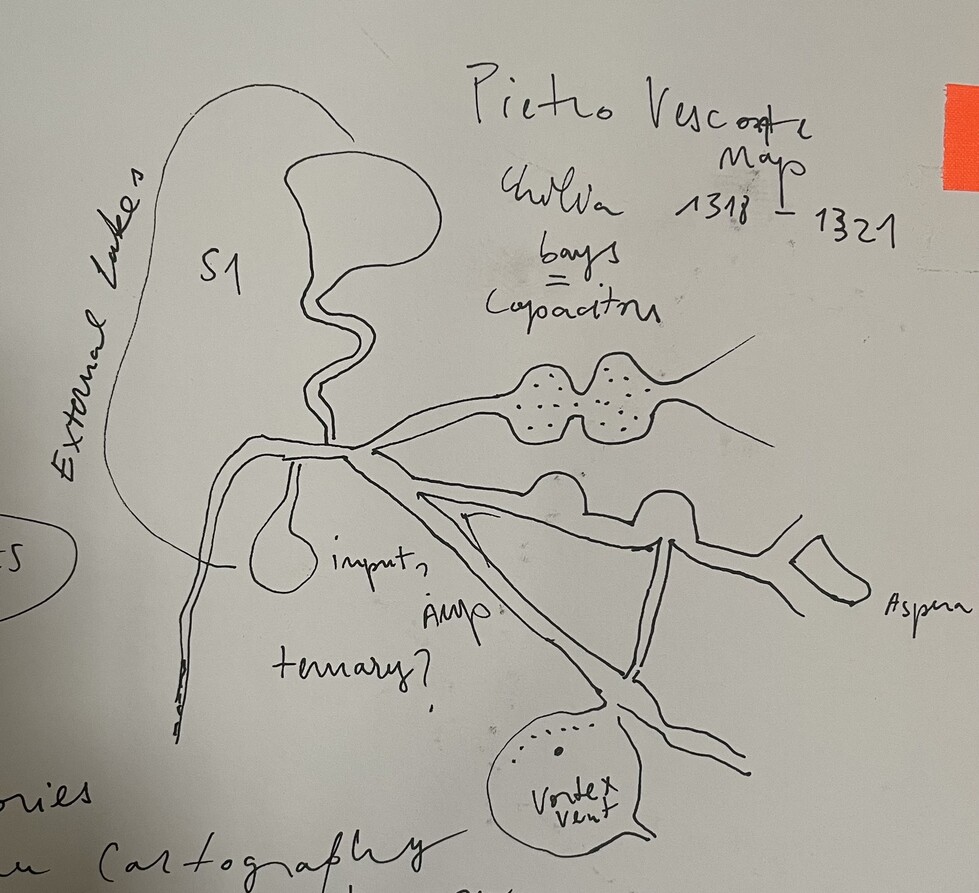 Pietro Vesconte
Map
Chilia 1318 - 1321
bays
=
Capacitors
External Lakes
S1
input,
Amp
ternary?
Aspera
Vortex
Vent
Cartography